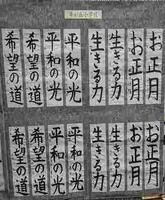 お正月
お正月
生きる力
生きる力
平和の光
平和の光
希望の道
希望の道
お正月
お正月
生きる力
生きる力
平和の光
平和の光
希望の道
希望の道